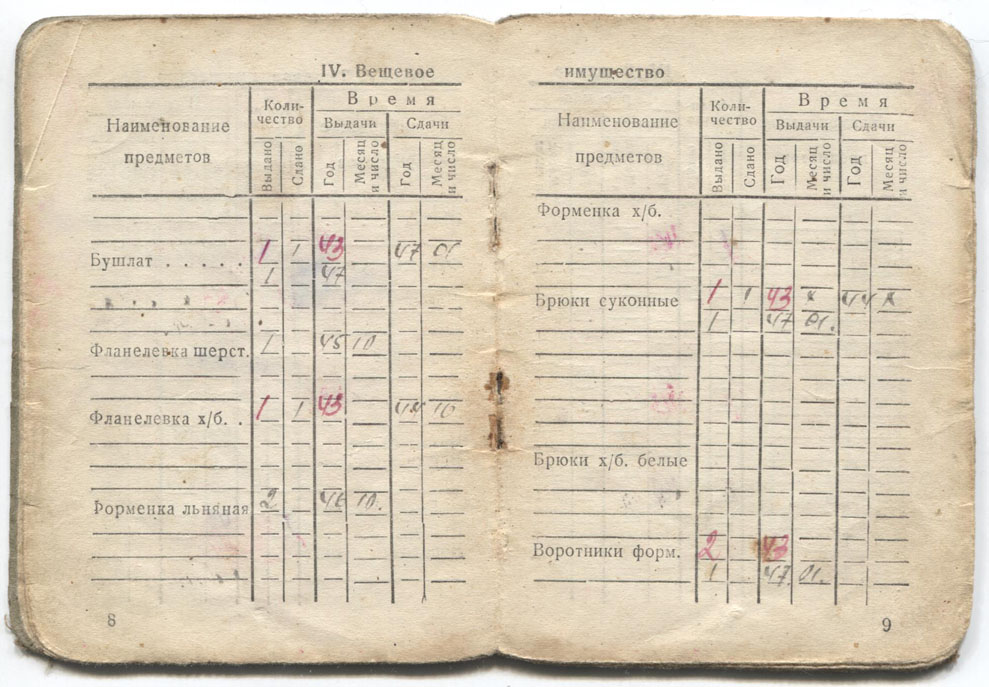 IV. Вещевое имущество
Наименование предметов
Количество
Время
Выдачи
Сдачи
Выдано
Сдано
Год
Месяц и число
Год
Месяц и число
Бушлат . . . . . 1 1 43 47 01
1 47
Фланелевка шерст. 1 45 10
Фланелевка х/б. . 1 1 43 10
Форменка льняная 2 46 10.
8
Наименование предметов
Коли-
чество
Время
Выдачи
Сдачи
Выдано
Сдано
Год
Месяц и число
Год
Месяц и число
Форменка х/б.
Брюки суконные 1 1 43
1 47 01.
Брюки х/б. белые
Воротники форм. 2 43
1 47. 01.
9